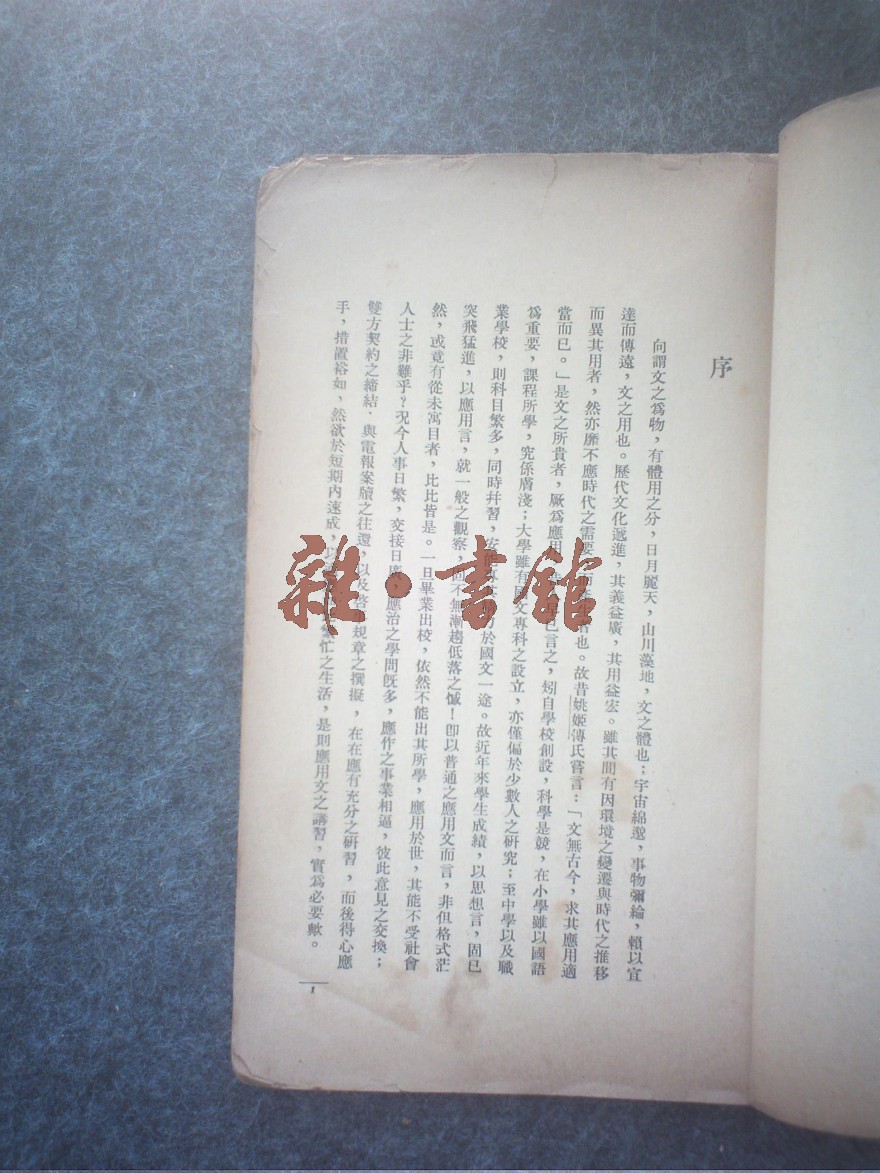 序
向謂文之爲物，有體用之分，日月麗天，山川藻地，文之體也；宇宙綿邈，事物彌綸，賴以宣
達而傳遠，文之用也。歷代文化遞進，其義益廣，其用益宏。雖其間有因環境之變遷與時代之推移
而異其用者，然亦靡不應時代之需要而 也。故昔姚姬傳氏嘗言：「文無古今，求其應用適
當而已。」是文之所貴者，厥爲應用 已言之，矧自學校創設，科學是競，在小學雖以國語
爲重要，課程所學，究係膚淺；大學雖有國文專科之設立，亦僅偏於少數人之研究；至中學以及職
業學校，則科目繁多，同時幷習，安能專 力於國文一途。故近年來學生成績，以思想言，固已
突飛猛進，以應用言，就一般之觀察，固不無漸趨低落之憾！卽以普通之應用文而言，非但格式茫
然，或竟有從未寓目者，比比皆是。一旦畢業出校，依然不能出其所學，應用於世，其能不受社會
人士之非難乎？況今人事日繁，交接日廣，應治之學問旣多，應作之事業相逼，彼此意見之交換；
雙方契約之締結．與電報案牘之往還，以及 規章之撰擬，在在應有充分之研習，而後得心應
手，措置裕如，然欲於短期內速成，以 繁忙之生活，是則應用文之講習，實爲必要歟。
1
雜·書館